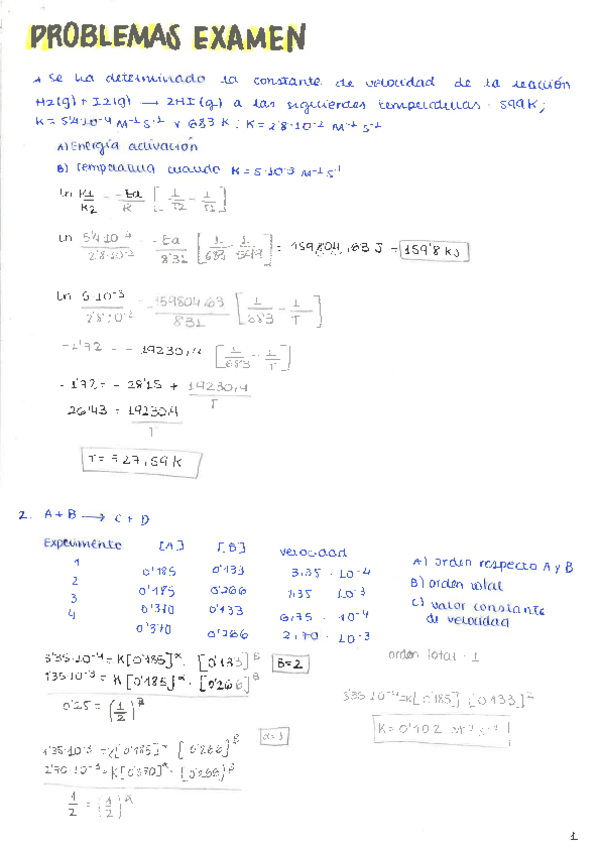 PROBLEMAS EXAMEN
1 Se ha determinado la constante de velocidad de la reacción
H2(g) + I2(g) → 2HI(g) a las siguientes temperaturas: 599K;
K = 5'4·10⁻⁴ M⁻¹ s⁻¹ y 683 K: K = 2'8·10⁻² M⁻¹ s⁻¹
A) Energía activación
B) Temperatura cuando K = 5·10⁻³ M⁻¹ s⁻¹
ln K1/K2 = -Ea/R [1/T2 - 1/T1]
ln 5'4·10⁻⁴/2'8·10⁻² = -Ea/8'31 [1/683 - 1/599] = 159804,63 J = 159'8 KJ
ln 5·10⁻³/2'8·10⁻² = -159804,63/8'31 [1/683 - 1/T]
-1'72 = -19230,4 [1/683 - 1/T]
-1'72 = -28'15 + 19230,4/T
26'43 = 19230,4/T
T = 727,59 K
2. A + B → C + D
Experimento [A] [B] velocidad
1 0'185 0'133 3'35 · 10⁻⁴
2 0'185 0'266 1'35 · 10⁻³
3 0'370 0'133 6'75 · 10⁻⁴
4 0'370 0'266 2'70 · 10⁻³
A) orden respecto A y B
B) orden total
C) valor constante
de velocidad
3'35·10⁻⁴ = K[0'185]^α · [0'133]^β B=2
1'35·10⁻³ = K[0'185]^α · [0'266]^β
0'25 = (1/2)^β
orden total · 1
3'35·10⁻⁴ = K[0'185] · [0'133]²
K = 0'102 M⁻² s⁻¹
1'35·10⁻³ = K[0'185]^α · [0'266]^β α=1
2'70·10⁻³ = K[0'370]^α · [0'266]^β
1/2 = (1/2)^α
1